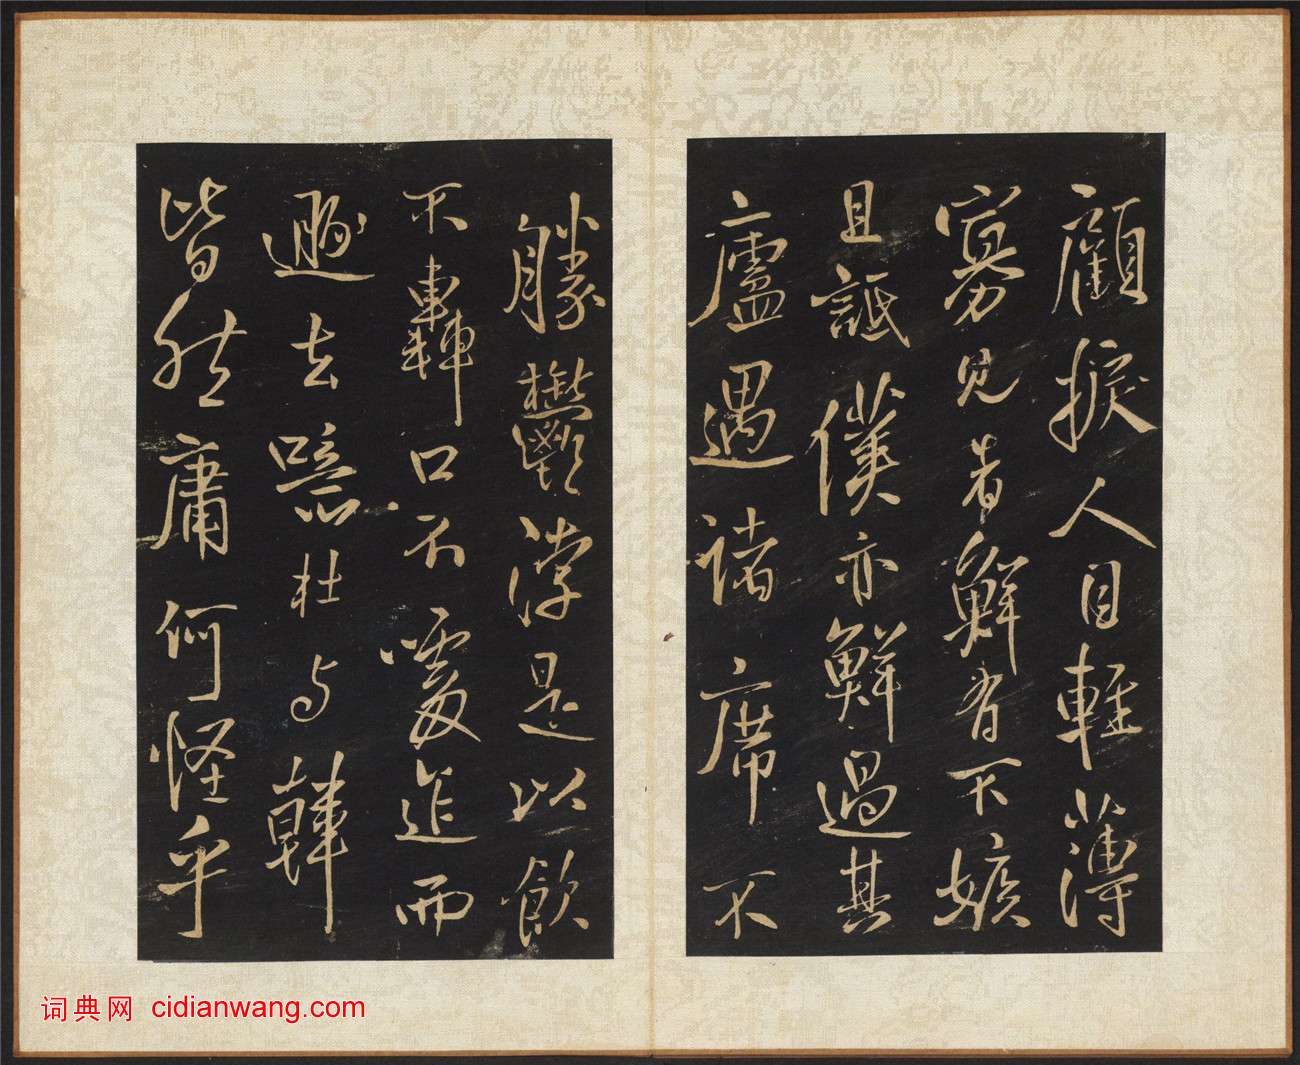 顧捩人目輕薄
寡見者鮮有不嫉
且詆僕亦鮮過其
廬遇諸席不
勝鬱浡是以飲
不轟口不嗄遮而
遯去噫杜与韓
皆然庸何怪乎
词典网 cidianwang.com